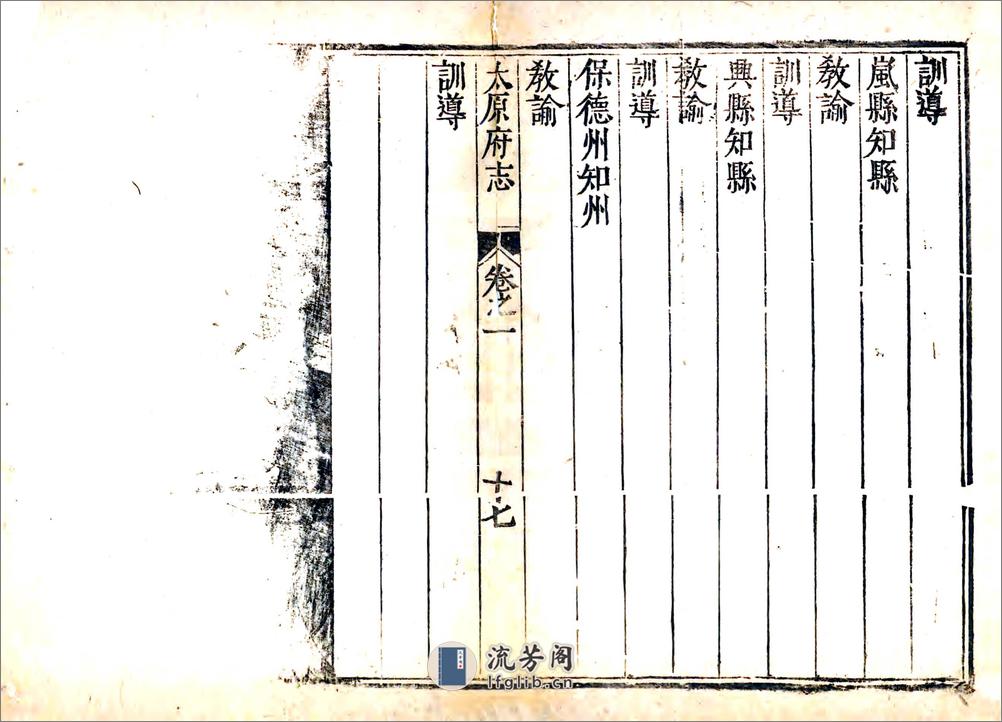 訓導
嵐縣知縣
教諭
訓導
興縣知縣
教諭
訓導
保德州知州
教諭
太原府志 卷之一 十七
訓導
流芳阁
lfglib.cn